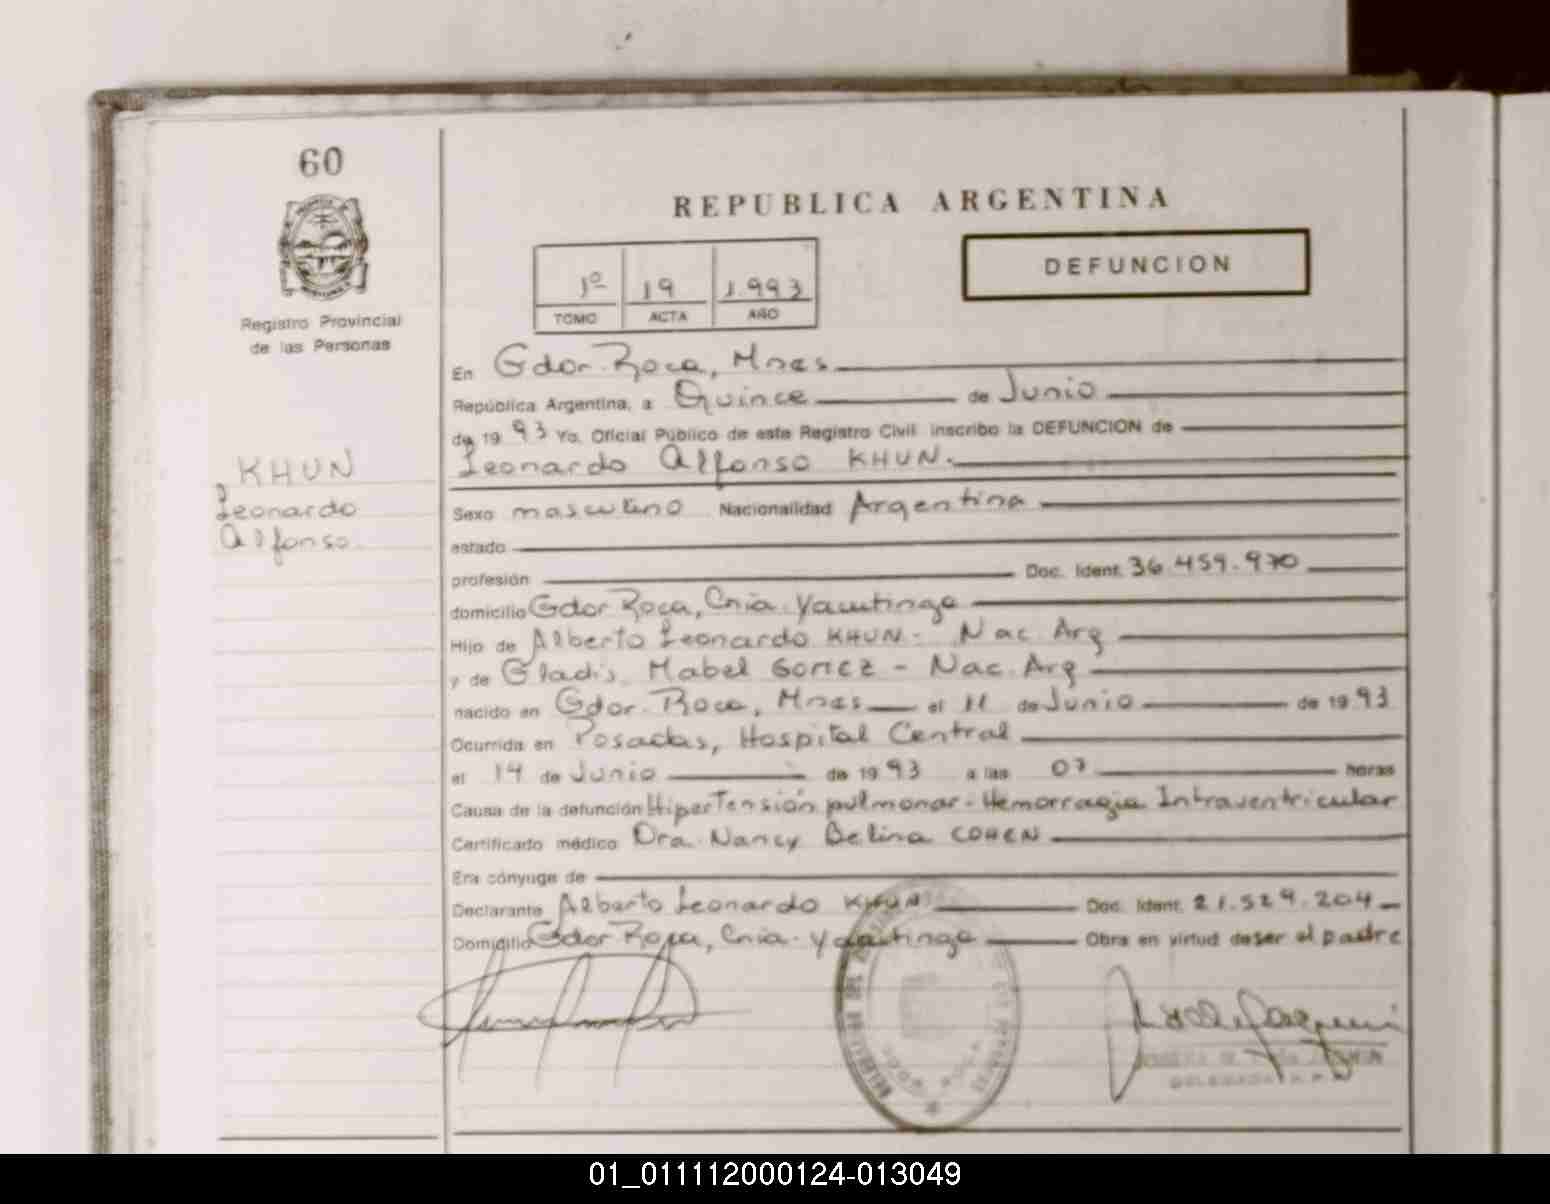 60
Registro Provincial
de las Personas
KHUN
Leonardo
Alfonso.
REPUBLICA ARGENTINA
1º 19 1.993
TOMO ACTA AÑO
DEFUNCION
En Gdor. Roca, Mnes
República Argentina, a Quince de Junio
de 1993 Yo. Oficial Público de este Registro Civil inscribo la DEFUNCION de
Leonardo Alfonso KHUN.
Sexo masculino Nacionalidad Argentina
estado
profesión Doc. Ident. 36.459.970
domicilio Gdor Roca, Cnia. Yacutinga
Hijo de Alberto Leonardo KHUN - Nac. Arg
y de Gladis Mabel GOMEZ - Nac. Arg
nacido en Gdor. Roca, Mnes el 11 de Junio de 1993
Ocurrida en Posadas, Hospital Central
el 14 de Junio de 1993 a las 07 horas
Causa de la defunción Hipertensión pulmonar - Hemorragia Intraventricular
Certificado médico Dra. Nancy Belina COHEN
Era cónyuge de
Declarante Alberto Leonardo KHUN Doc. Ident. 21.529.204
Domicilio Gdor Roca, Cnia. Yacutinga Obra en virtud de ser el padre
01_011112000124-013049